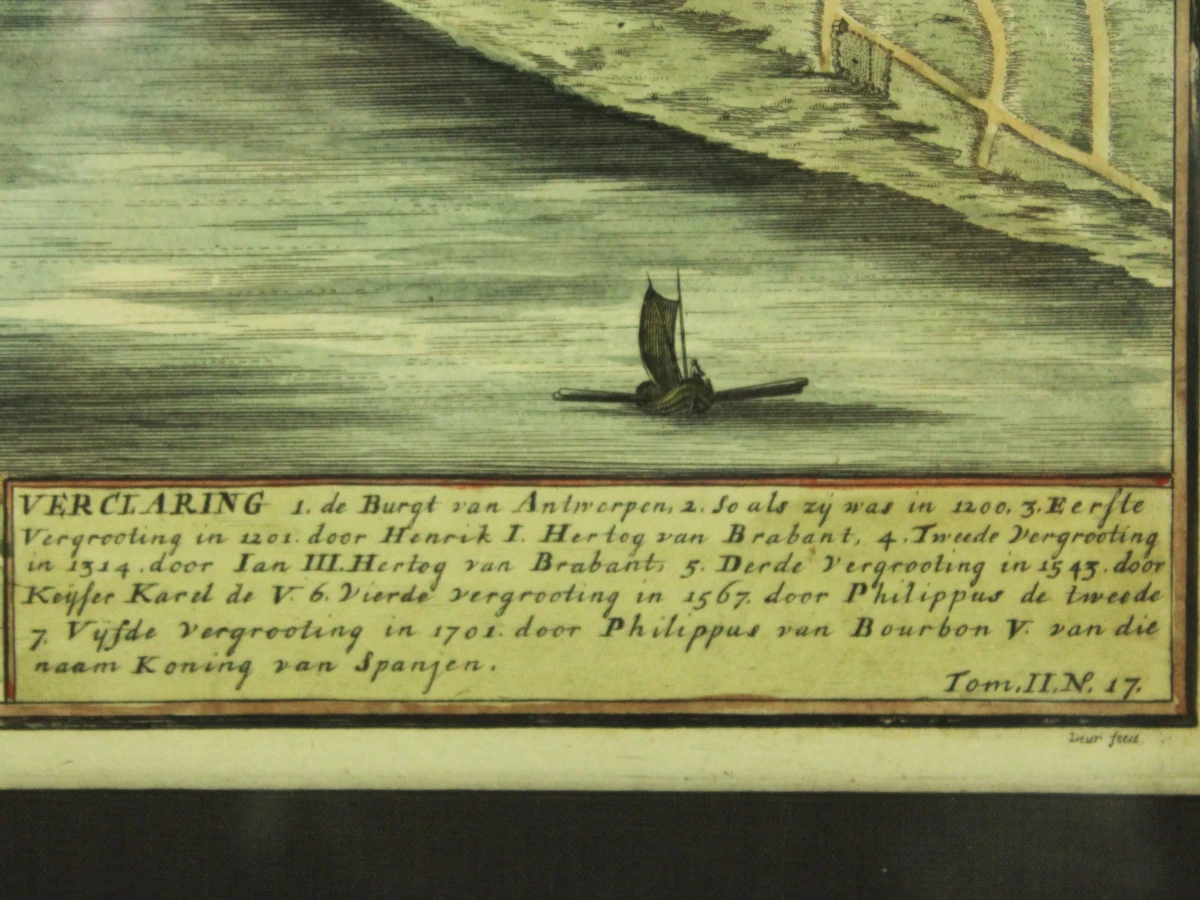 VERCLARING 1. de Burgt van Antwerpen, 2. so als zy was in 1200, 3. Eerſte
Vergrooting in 1201. door Henrik I. Hertog van Brabant, 4. Tweede Vergrooting
in 1314. door Ian III. Hertog van Brabant, 5. Derde Vergrooting in 1543. door
Keyſer Karel de V. 6. Vierde vergrooting in 1567. door Philippus de tweede
7. Vyfde Vergrooting in 1701. door Philippus van Bourbon V. van die
naam Koning van Spanjen.
Tom. II. No. 17.
Deur fecit